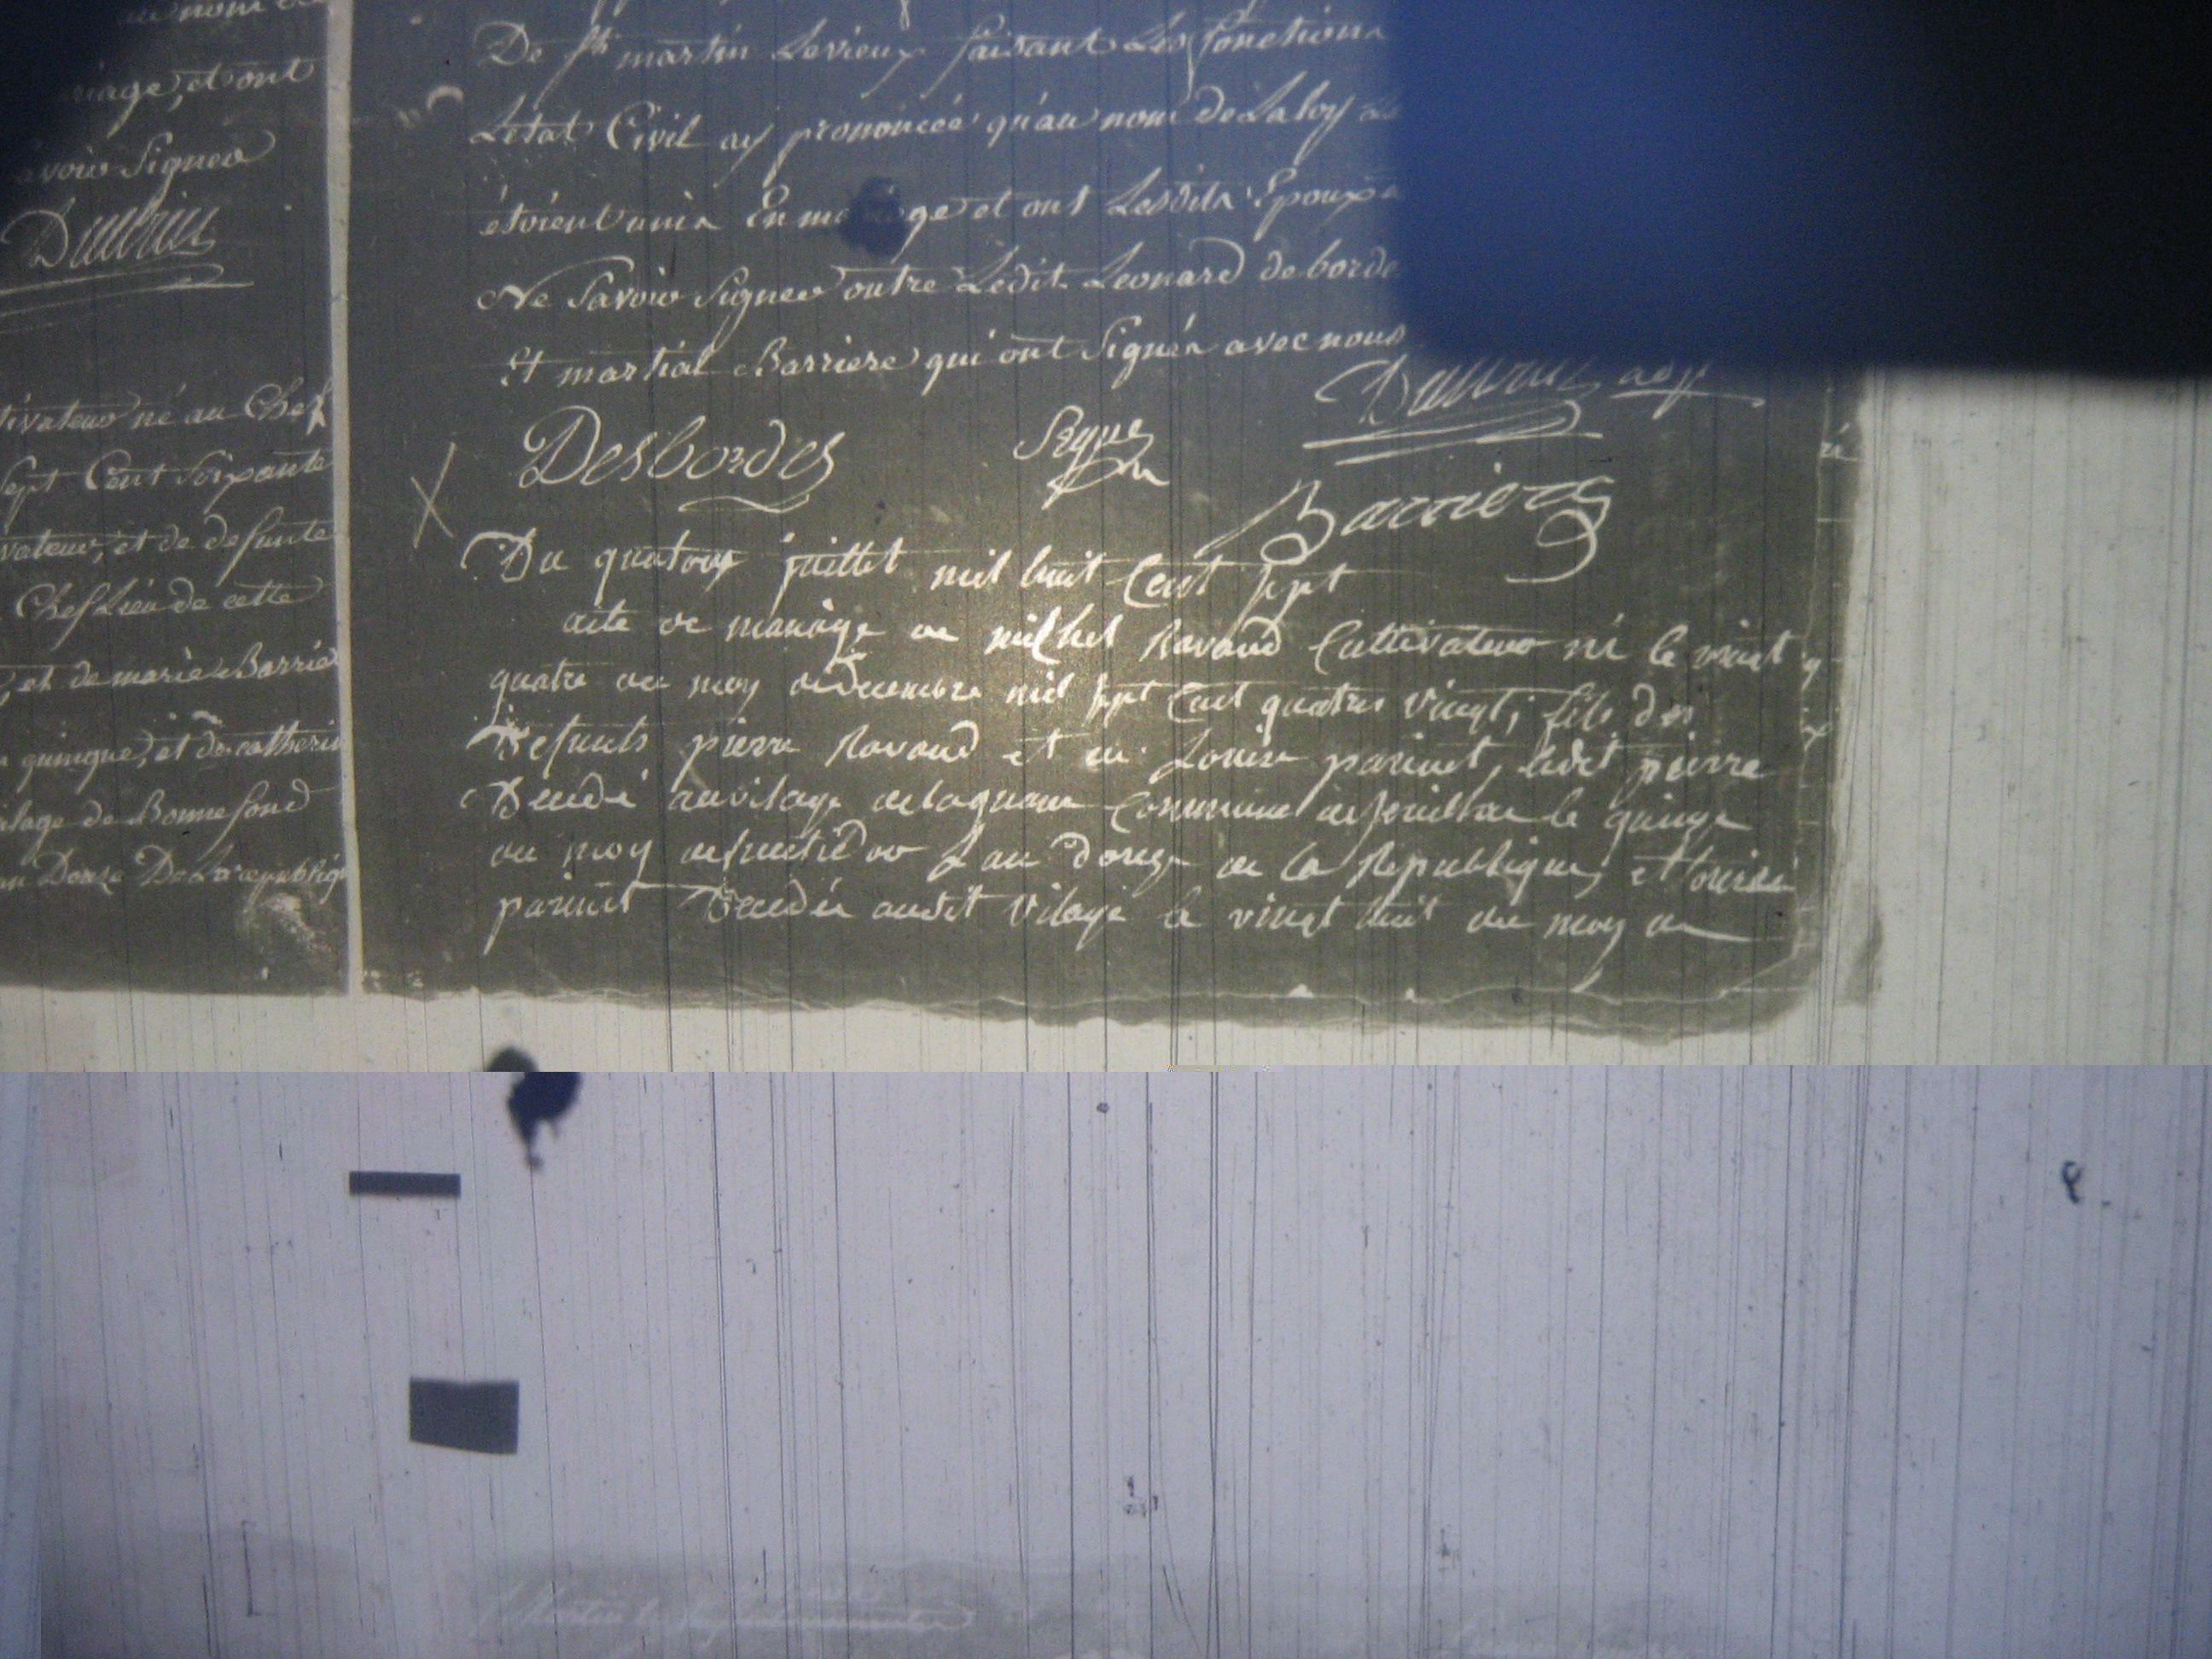 au nom de
riage, et ont
avoir Signer
Dutrieu
tivateur né au Chef
Sept Cent Soixante
vateur, et de defunte
Chef Lieu de cette
, et de marie Barrier
quinque, et de catherin
ilage de Bonnefond
an Douze De La republiq
De St martin Levieux faisant Les fonctions
Létat Civil ay prononcée qu'au nom de La loy
étoient unis En mariage et ont Lesdits Epoux
Ne Savoir Signer outre Ledit Leonard deborde
Et martial Barriere qui ont Signés avec nous
adjt
Desbordes
Barriere
Du quatorze juillet mil huit Cent sept
acte de mariage de michel Ravaud Cultivateur né le vingt
quatre du moy de decembre mil sept Cent quatre vingt, fils des
Defunts pierre Ravaud et de Louise parinet, ledit pierre
Decedé au vilage de commune de le quinze
du moy de fructidor L'an Douze de la Republique, et Louise
parinet Decedée audit vilage le vingt huit du moy de